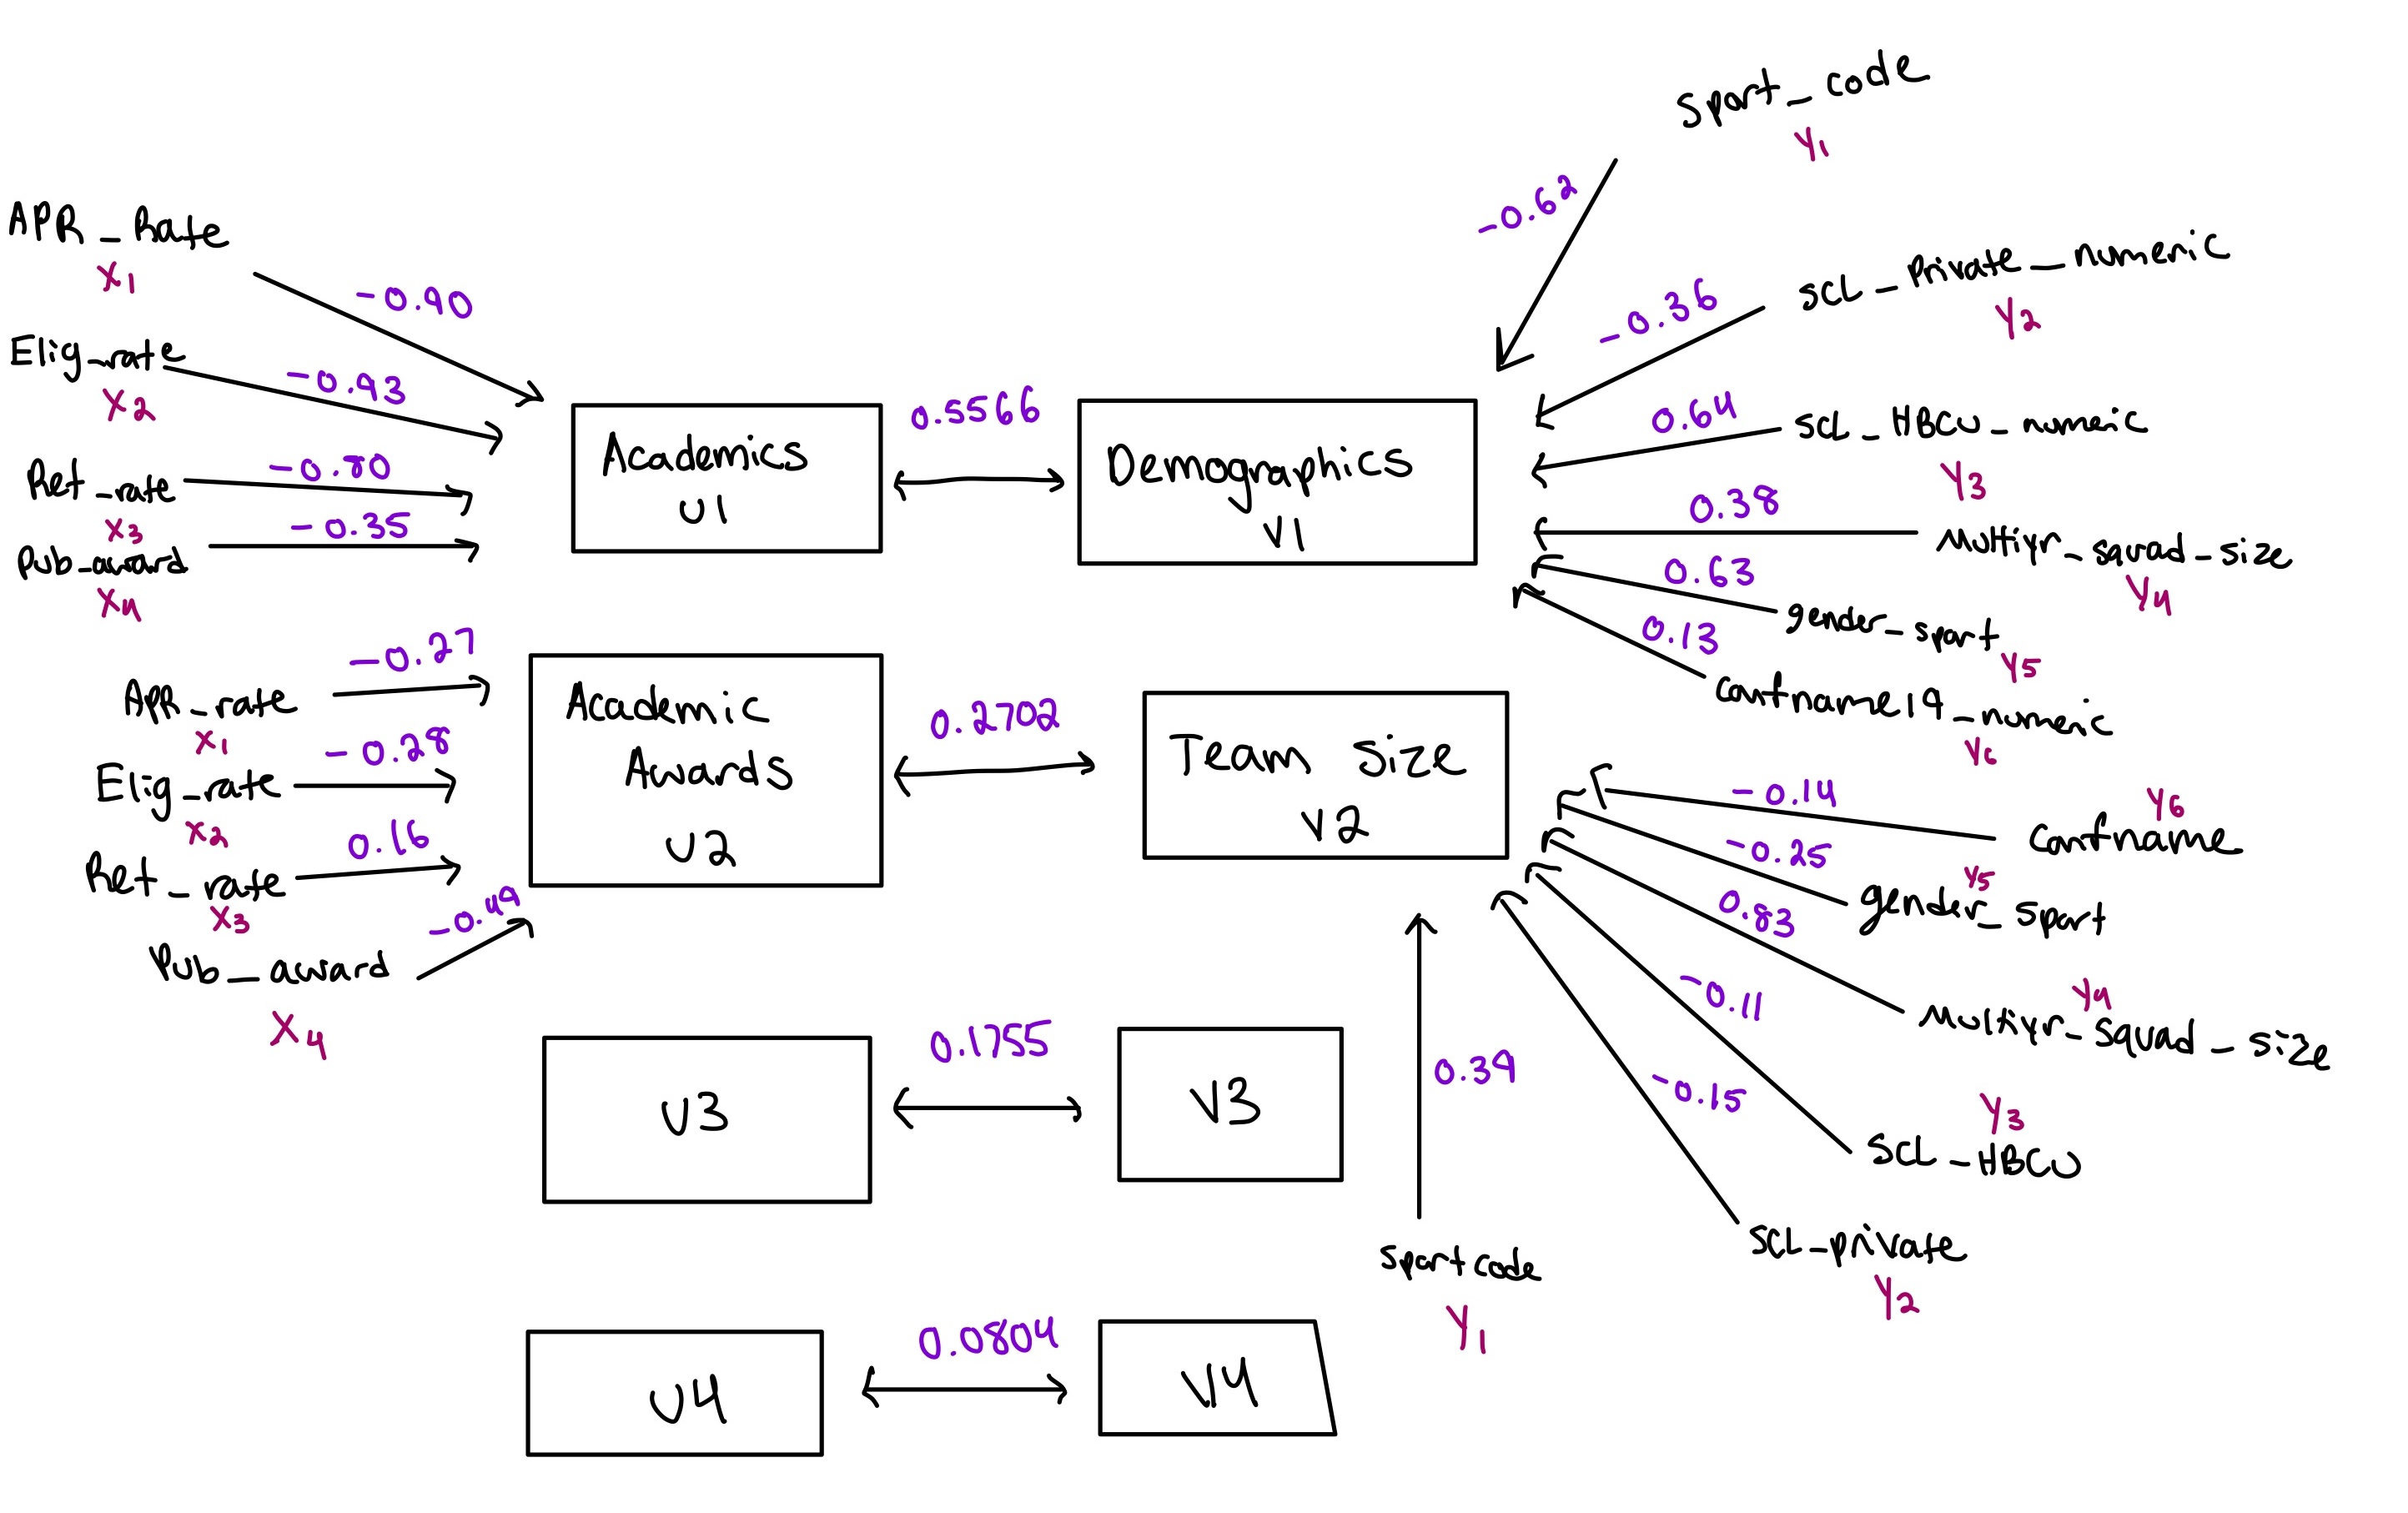 Sport_code
Y1
-0.62
APR_Rate
X1
-0.90
Elig_rate
X2
-0.93
Ret_rate
X3
-0.80
Pub_award
X4
-0.35
Academics
U1
0.5566
Demographics
V1
-0.36
SCL_Private_numeric
Y2
0.64
SCL_HBCU_numeric
Y3
0.38
Multiyr_squad_size
Y4
0.63
gender_sport
Y5
0.13
confname19_numeric
Y6
-0.27
APR_rate
X1
-0.28
Elig_rate
X2
0.16
Ret_rate
X3
Pub_award
X4
Academic
Awards
U2
0.2702
Team Size
V2
-0.14
Y6
Confname
-0.25
Y5
gender_sport
0.83
Y4
Multiyr_squad_size
-0.11
Y3
SCL_HBCU
-0.15
SCL_private
Y2
0.39
sportcode
Y1
U3
0.1755
V3
U4
0.0804
V4